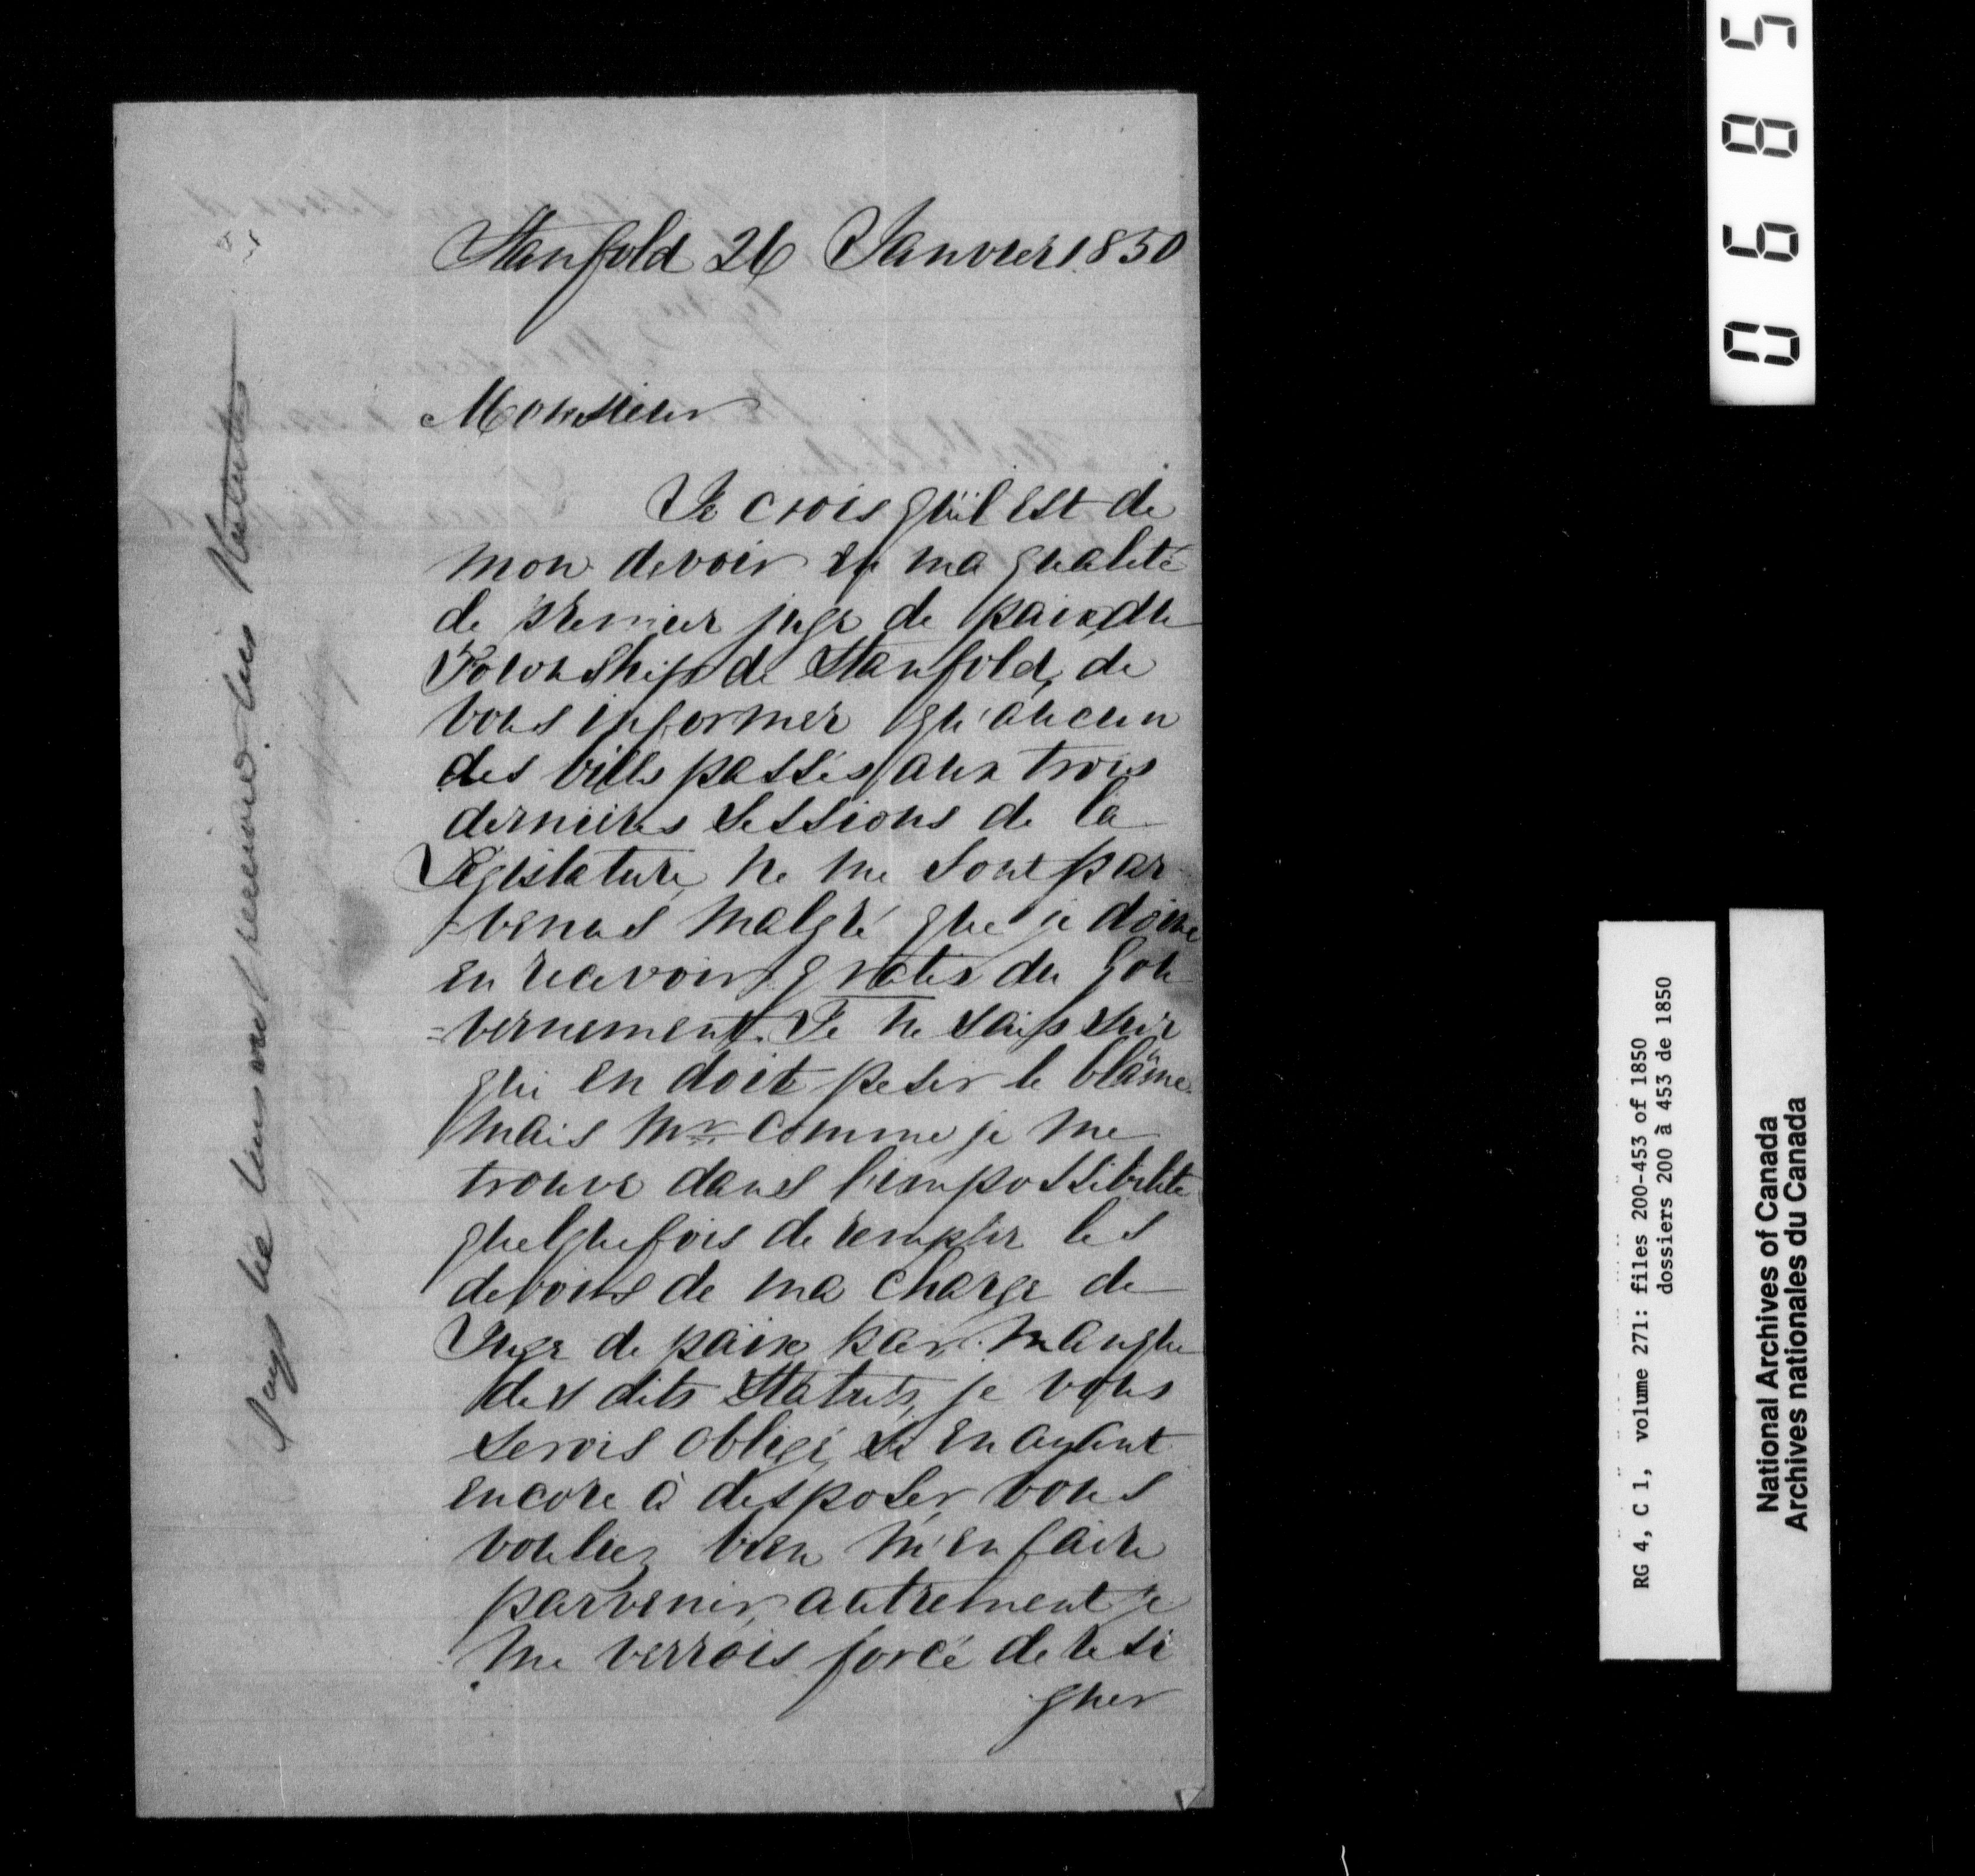 Stanfold 26 Janvier 1850
Monsieur
Je crois qu'il est de
mon devoir en ma qualité
de premier juge de paix du
Township de Stanfold, de
vous informer qu'aucun
des bills passés aux trois
dernières Sessions de la
Législature, ne me sont par
-venus malgré que je doive
en recevoir gratis du Gou
=vernement. Je ne sais sur
qui en doit peser le blâme.
Mais Mr comme je me
trouve dans l'impossibilité
quelquefois de remplir les
devoirs de ma charge de
Juge de paix par manque
des dits Statuts, je vous
serois obligé, si en ayant
encore à disposer, vous
vouliez bien m'en faire
parvenir, autrement je
me verrois forcé de rési
gner
Says he has not received his Statutes
0685
RG 4, C 1, volume 271: files 200-453 of 1850
dossiers 200 à 453 de 1850
National Archives of Canada
Archives nationales du Canada